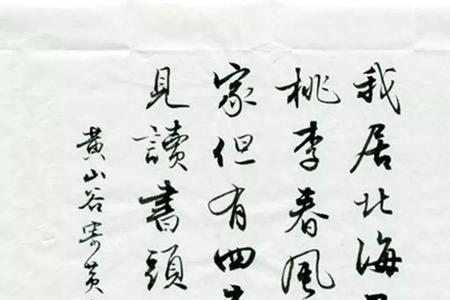 我居北海
桃李春風
家但有四
見讀書頭
黄山谷寄黄